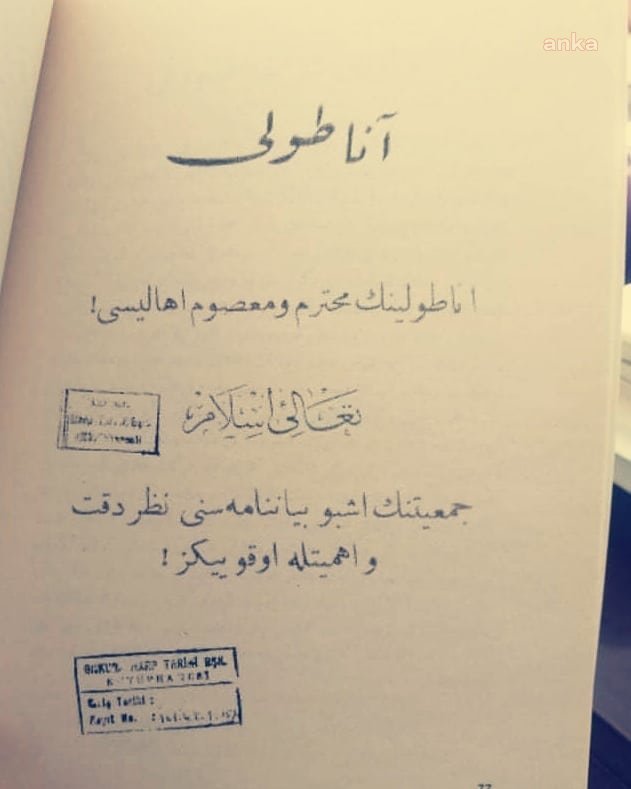 anka
آناطولی
اناطولینك محترم ومعصوم اهالیسی!
تَعَالِئ اِسْلَامْ
جمعیتنك اشبو بیاننامه‌سنی نظر دقت
و اهمیتله اوقویيكز !
HARP TARİHİ BŞK.
KÜTÜPHANESİ
Geliş Tarihi :
Kayıt No. :
77